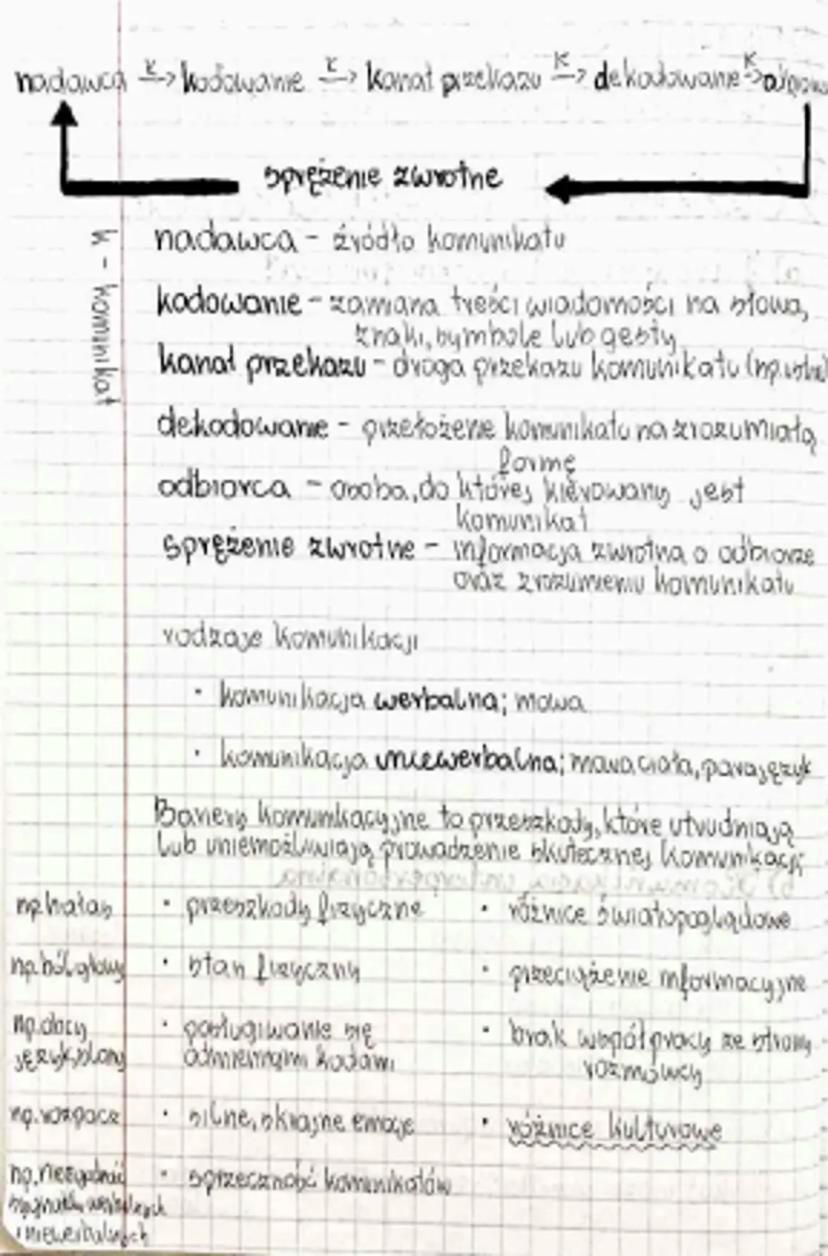 nadawca k→ kodowanie k→ kanał przekazu k→ dekodowanie k→
sprężenie zwrotne
k - komunikat
nadawca - źródło komunikatu
kodowanie - zamiana treści wiadomości na słowa,
znaki, symbole lub gesty
kanał przekazu - droga przekazu komunikatu (np.
dekodowanie - przełożenie komunikatu na zrozumiałą
formę
odbiorca - osoba, do której kierowany jest
komunikat
sprężenie zwrotne - informacja zwrotna o odbiorze
oraz zrozumieniu komunikatu
rodzaje komunikacji
· komunikacja werbalna; mowa
· komunikacja niewerbalna; mowa ciała, parajęzyk
Bariery komunikacyjne to przeszkody, które utrudniają
lub uniemożliwiają prowadzenie skutecznej komunikacji
np. hałas · przeszkody fizyczne · różnice światopoglądowe
np. ból głowy · stan fizyczny · przeciążenie informacyjne
np. obcy · posługiwanie się · brak współpracy ze strony
język, slang odmiennymi kodami rozmówcy
np. rozpacz · silne, skrajne emocje · różnice kulturowe
np. niezgodność · sprzeczność komunikatów
werbalnych
i niewerbalnych